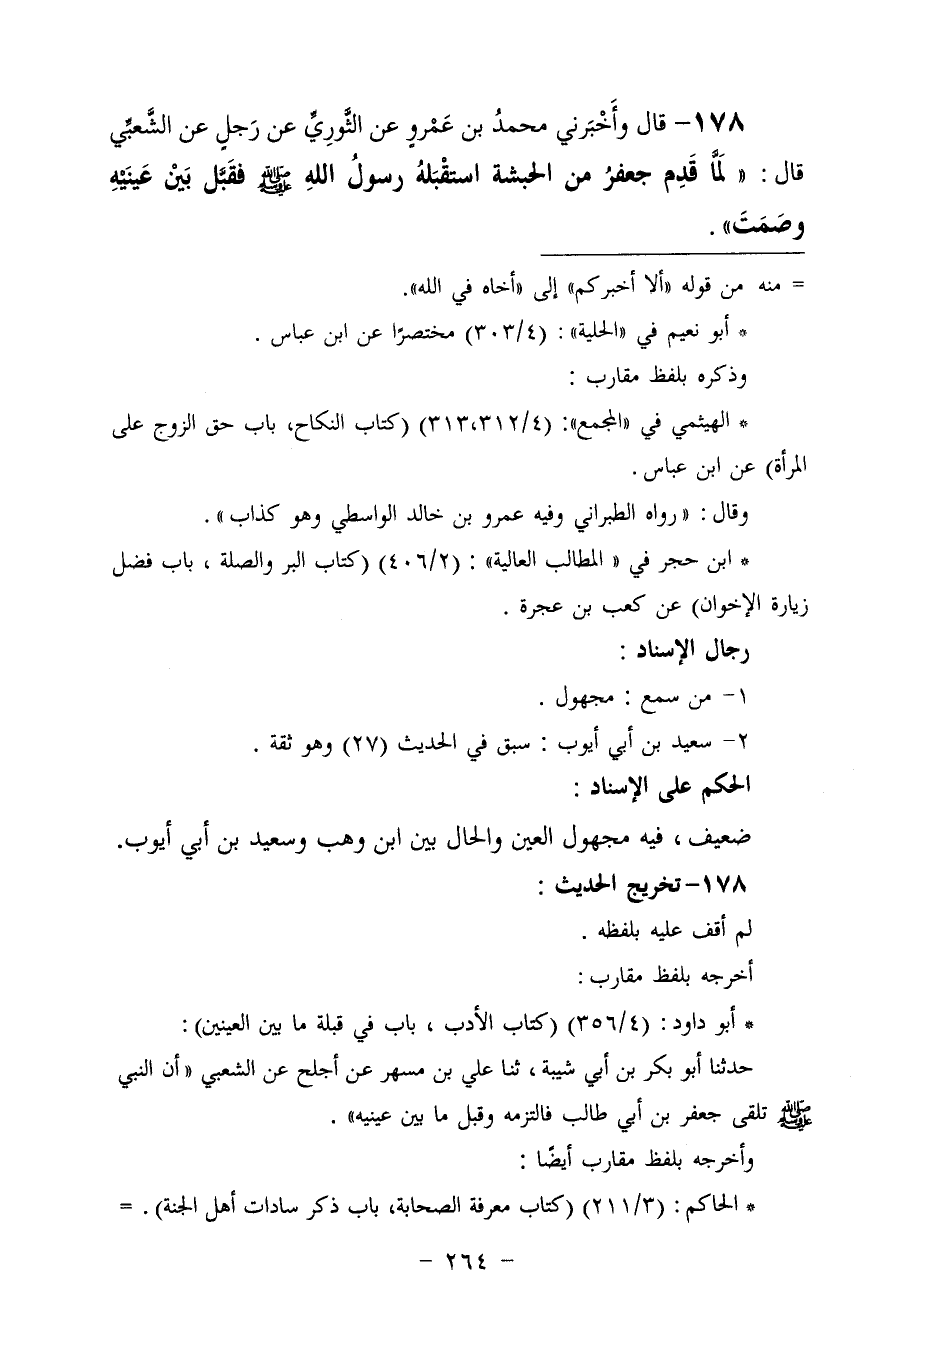 ١٧٨- قال وأَخْبَرني محمدُ بن عَمْروٍ عن الثَّورِيِّ عن رَجلٍ عن الشَّعبِّي
قال : « لَمَّا قَدِم جعفرُ من الحبشة استقْبَلهُ رسولُ اللهِ ﷺ فقَبَّل بَيْنَ عَينَيْهِ
وصَمَتَ» .
= منه من قوله «ألا أخبركم» إلى «أخاه في الله».
* أبو نعيم في «الحلية» : (٣٠٣/٤) مختصرًا عن ابن عباس .
وذكره بلفظ مقارب :
* الهيثمي في «المجمع»: (٣١٣،٣١٢/٤) (كتاب النكاح، باب حق الزوج على
المرأة) عن ابن عباس .
وقال : « رواه الطبراني وفيه عمرو بن خالد الواسطي وهو كذاب» .
* ابن حجر في « المطالب العالية» : (٤٠٦/٢) (كتاب البر والصلة ، باب فضل
زيارة الإخوان) عن كعب بن عجرة .
رجال الإسناد :
١- من سمع : مجهول .
٢- سعيد بن أبي أيوب : سبق في الحديث (٢٧) وهو ثقة .
الحكم على الإسناد :
ضعيف ، فيه مجهول العين والحال بين ابن وهب وسعيد بن أبي أيوب.
١٧٨- تخريج الحديث :
لم أقف عليه بلفظه .
أخرجه بلفظ مقارب :
* أبو داود : (٣٥٦/٤) (كتاب الأدب ، باب في قبلة ما بين العينين) :
حدثنا أبو بكر بن أبي شيبة ، ثنا علي بن مسهر عن أجلح عن الشعبي «أن النبي
ﷺ تلقى جعفر بن أبي طالب فالتزمه وقبل ما بين عينيه» .
وأخرجه بلفظ مقارب أيضًا :
* الحاكم : (٢١١/٣) (كتاب معرفة الصحابة، باب ذكر سادات أهل الجنة) . =
- ٢٦٤ -